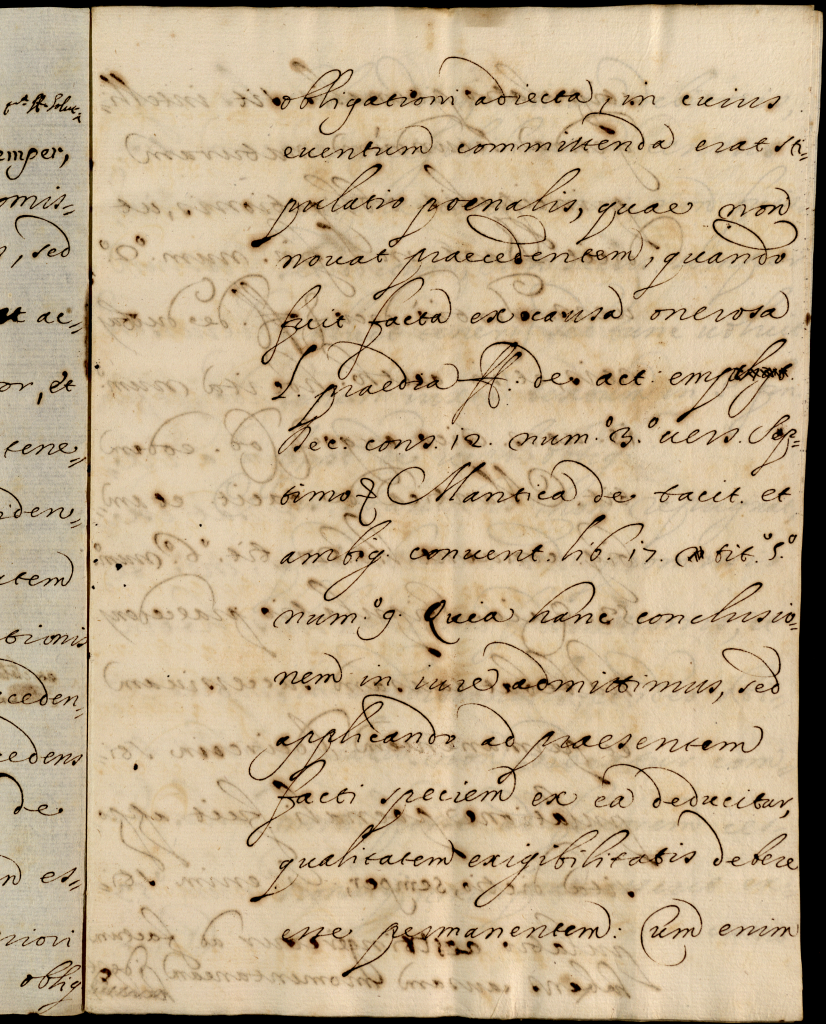 emper,
omis=
, sed
t ac=
or, et
tene=
iden=
utem
tionis
ceden=
cedens
de
n es=
riori
oblig
obligationi adiecta, in cuius
euentum committenda erat sti=
pulatio poenalis, quae non
nouat praecedentem, quando
fuit facta ex causa onerosa
L. praedia ff. de act. emp.
Bec. cons. 12. num.º 3.º uers. Sep=
timo Mantica de tacit. et
ambig. conuent. lib. 17. tit.º 5.º
num.º 9. Quia hanc conclusio=
nem in iure admittimus, sed
applicando ad praesentem
facti speciem ex ea deducitur,
qualitatem exigibilitatis debere
esse permanentem: Cum enim